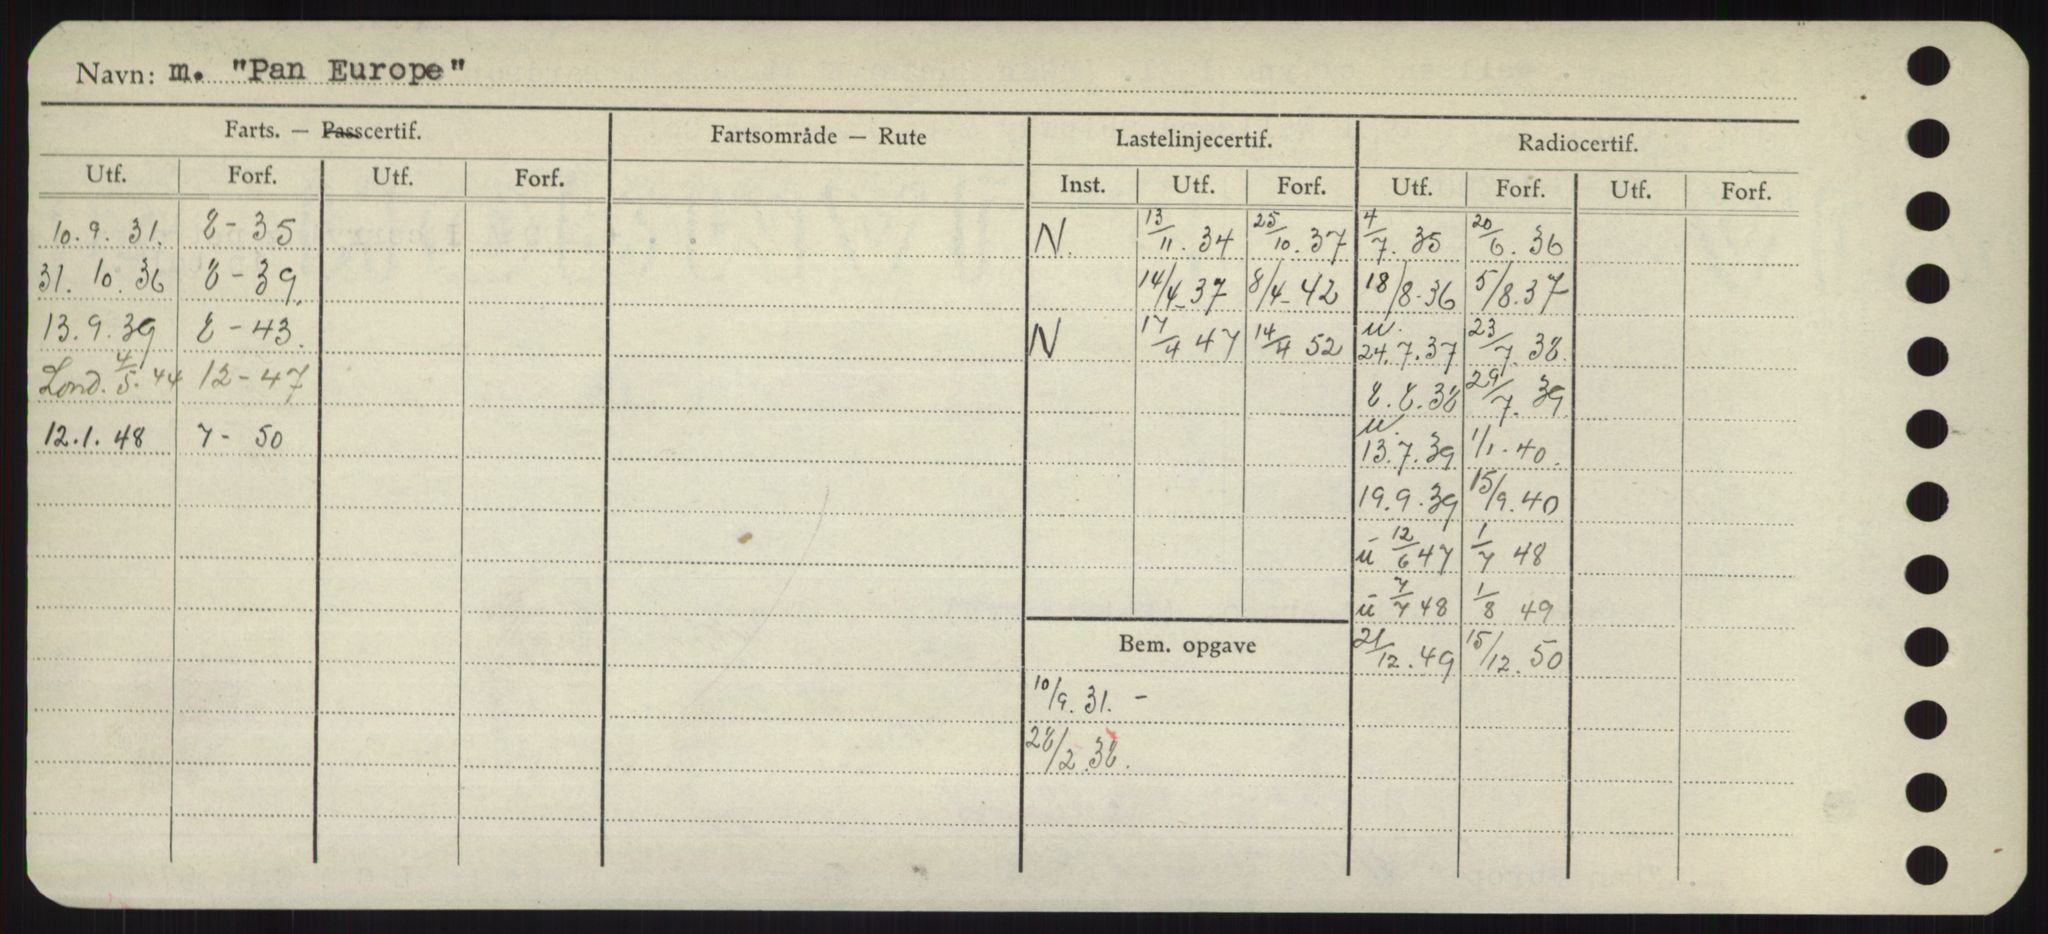 Navn: m. "Pan Europe"
Farts. — Passcertif. Fartsområde — Rute Lastelinjecertif. Radiocertif.
Utf. Forf. Utf. Forf. Inst. Utf. Forf. Utf. Forf. Utf. Forf.
10.9.31. 8-35 N. 13/11.34 25/10.37 4/7.35 20/6.36
31.10.36 8-39. 14/4-37 8/4-42 18/8.36 5/8.37
13.9.39 8-43. N 17/4 47 14/4 52 u. 24.7.37 23/7.38.
Lond. 4/5.44 12-47 8.8.38 29/7.39
12.1.48 7-50 u. 13.7.39 1/1.40.
19.9.39 15/9.40
u 12/6 47 1/7 48
u 7/7 48 1/8 49
Bem. opgave 21/12.49 15/12.50
10/9.31. -
28/2.38.